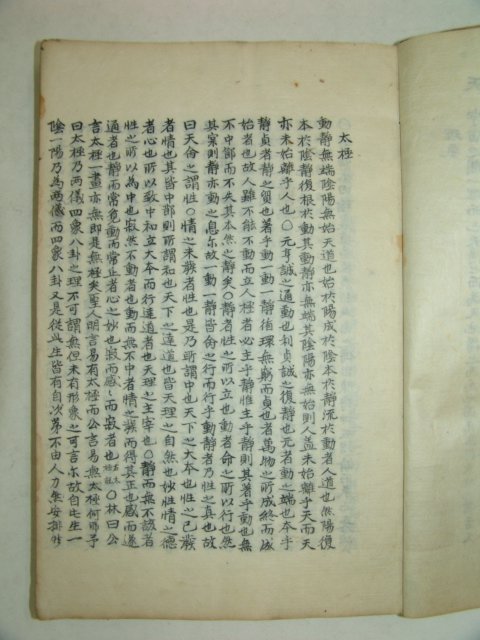 太極
動靜無端陰陽無始天道也始於陽成於陰本於靜流於動者人道也然陽復
本於陰靜復根於動其動靜亦無端其陰陽亦無始則人盖未始離乎天而天
亦未始離乎人也○元亨誠之通動也利貞誠之復靜也元者動之端也本乎
靜貞者靜之質也著乎動一動一靜循環無窮而貞也者萬物之所成終而成
始者也故人雖不能不動而立人極者必主乎靜惟主乎靜則其著乎動也無
不中節而不失其本然之靜矣○靜者性之所以立也動者命之所以行也然
其實則靜亦動之息尔故一動一靜皆命之行而行乎動靜者乃性之真也故
曰天命之謂性○情之未發者性也是乃所謂中也天下之大本也性之已發
者情也其皆中節則所謂和也天下之達道也皆天理之自然也妙性情之德
者心也所以致中和立大本而行達道者也天理之主宰也○靜而無不該者
性之所以為中也寂然不動者也動而無不中者情之發而得其正也感而遂
通者也靜而常覺動而常止者心之妙也寂而感感而寂者也 ○林曰公
言太極一畫亦無即是無極矣聖人明言易有太極而公言易無太極何耶予
曰太極乃兩儀四象八卦之理不可謂無但未有形象之可言尔故自此生一
陰一陽乃為兩儀而四象八卦又是從此生皆有自次苐不由人力然安排